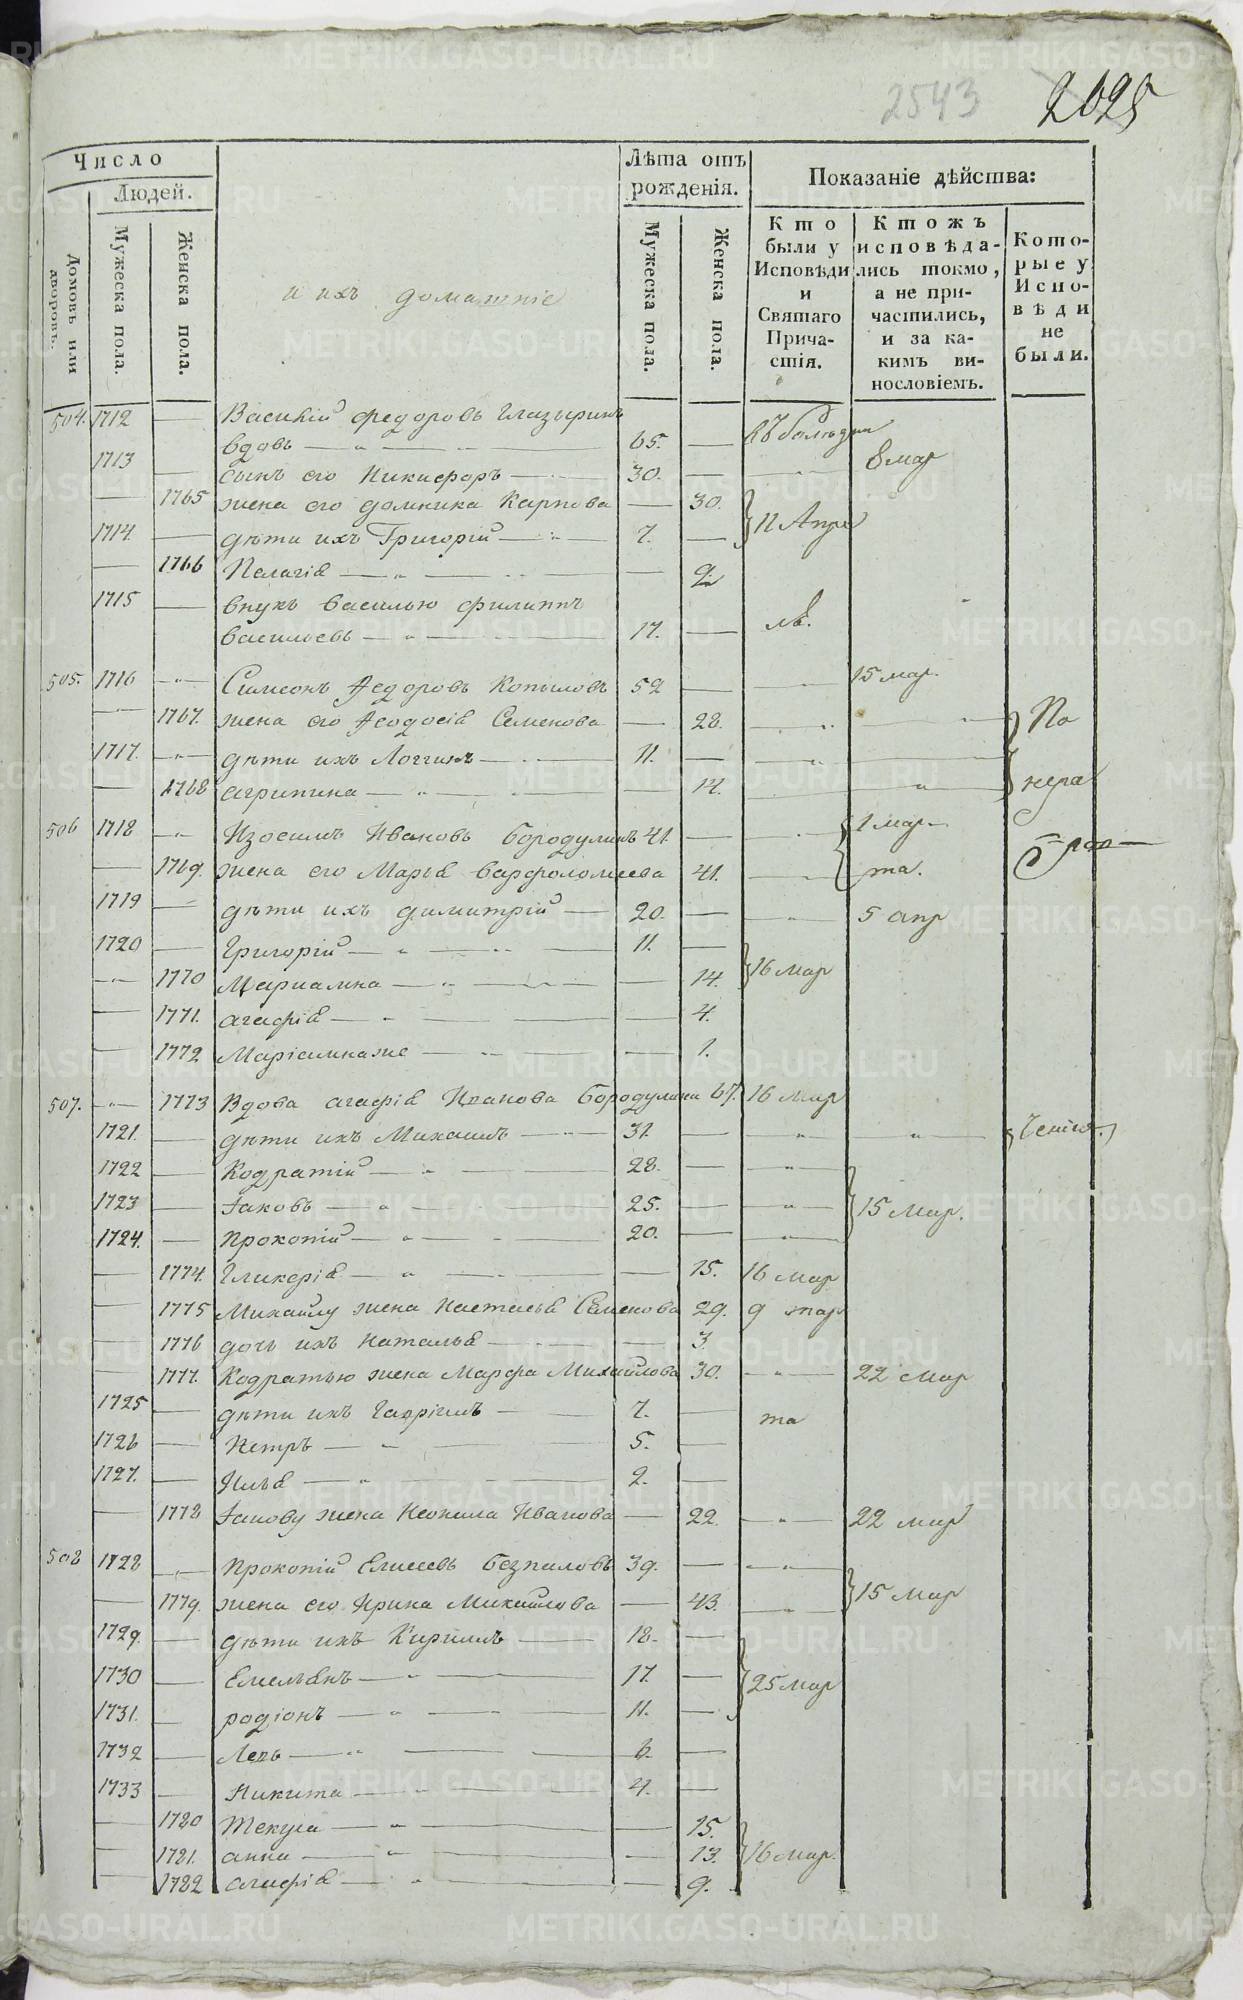 2543 2025
Число
Людей.
Домовъ или дворовъ.
Мужеска пола.
Женска пола.
и ихъ домашніе
Лѣта отъ рожденія.
Мужеска пола.
Женска пола.
Показаніе дѣйства:
Кто были у Исповѣди и Святаго Причастія.
Ктожъ исповѣдались токмо, а не причастились, и за какимъ винословіемъ.
Которые у Исповѣди не были.
504. 1712 — Василій Федоровъ Глазыринъ
вдовъ — 65. —
1713 — сынъ его Никифоръ — 30. — 8 мар
— 1765 жена его домника Карпова — 30. 11 Апре
1714. — дѣти ихъ Григорій — 7. —
— 1766 Пелагіѣ — 9.
1715 — внукъ василью филиппъ
васильевъ — 17. —
505. 1716 — Симеонъ Ѳедоровъ Копыловъ 52 — 15 мар.
— 1767. жена его Ѳеодосіѣ Семенова — 28. По
1717. — дѣти ихъ Логгинъ — 11. —
— 1768 агрипина — 14. нера
506 1718 — Изосимъ Ивановъ бородулинъ 41. — 1 мар
— 1769. жена его Марьѣ варфоломиева — 41. та.
1719 — дѣти ихъ димитрій — 20. — 5 апр
1720 — Григорій — 11. —
— 1770 Мариамна — 14. 16 мар
— 1771. агафіѣ — 4.
— 1772 Маріамнаже — 1.
507. — 1773 Вдова агафіѣ Иванова бородулина 67. 16 мар
1721. — дѣти ихъ Михаилъ — 31. —
1722 — Кодратій — 28. —
1723 — Іаковъ — 25. — 15 мар.
1724. — Прокопій — 20. —
— 1774. Гликеріѣ — 15. 16 мар
— 1775 Михаилу жена Настасьѣ Семенова 29. 9 мар
— 1776 дочь ихъ Натальѣ — 3.
— 1777. Кодратью жена Марфа Михайлова 30. 22 мар
1725 — дѣти ихъ Гавріилъ — 7. — та
1726 — Петръ — 5. —
1727. — Ильѣ — 2. —
— 1778 Іакову жена Неонила Иванова — 22. 22 мар
508 1728 — Прокопій Елисеевъ безпаловъ 39. —
— 1779. жена его Ирина Михайлова — 43. 15 мар
1729. — дѣти ихъ Кирилъ — 18. —
1730 — Емельѣнъ — 17. — 25 мар
1731. — родіонъ — 11. —
1732 — Левъ — 6. —
1733 — Никита — 4. —
— 1780 Текуса — 15.
— 1781. анна — 13. 16 мар.
— 1782 агафіѣ — 9.
METRIKI.GASO-URAL.RU